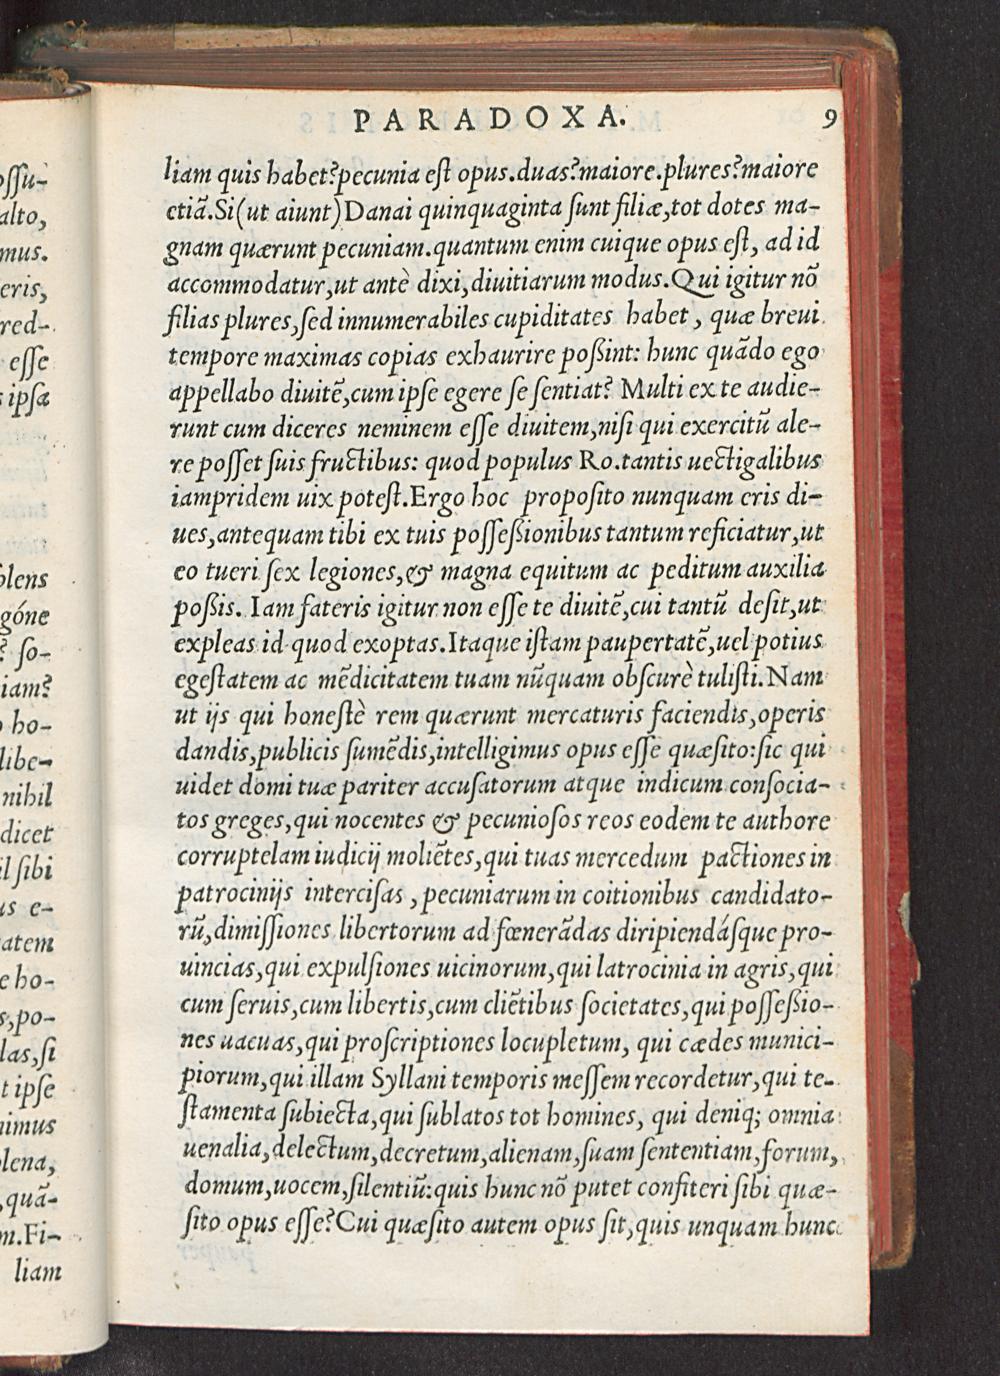 PARADOXA. 9
liam quis habet?pecunia est opus.duas?maiore.plures?maiore
etiã.Si(ut aiunt)Danai quinquaginta sunt filiæ,tot dotes ma-
gnam quærunt pecuniam.quantum enim cuique opus est, ad id
accommodatur,ut antè dixi,diuitiarum modus.Qui igitur nõ
filias plures,sed innumerabiles cupiditates habet, quæ breui
tempore maximas copias exhaurire poßint: hunc quãdo ego
appellabo diuitẽ,cum ipse egere se sentiat? Multi ex te audie-
runt cum diceres neminem esse diuitem,nisi qui exercitũ ale-
re posset suis fructibus: quod populus Ro.tantis uectigalibus
iampridem uix potest.Ergo hoc proposito nunquam eris di-
ues,antequam tibi ex tuis posseßionibus tantum reficiatur,ut
eo tueri sex legiones,& magna equitum ac peditum auxilia
poßis. Iam fateris igitur non esse te diuitẽ,cui tantũ desit,ut
expleas id quod exoptas.Itaque istam paupertatẽ,uel potius
egestatem ac mẽdicitatem tuam nũquam obscurè tulisti.Nam
ut ijs qui honestè rem quærunt mercaturis faciendis,operis
dandis,publicis sumẽdis,intelligimus opus esse quæsito:sic qui
uidet domi tuæ pariter accusatorum atque indicum consocia-
tos greges,qui nocentes & pecuniosos reos eodem te authore
corruptelam iudicij moliẽtes,qui tuas mercedum pactiones in
patrocinijs intercisas, pecuniarum in coitionibus candidato-
rũ,dimissiones libertorum ad fœnerãdas diripiendásque pro-
uincias,qui expulsiones uicinorum,qui latrocinia in agris,qui
cum seruis,cum libertis,cum cliẽtibus societates,qui posseßio-
nes uacuas,qui proscriptiones locupletum, qui cædes munici-
piorum,qui illam Syllani temporis messem recordetur,qui te-
stamenta subiecta,qui sublatos tot homines, qui deniq; omnia
uenalia,delectum,decretum,alienam,suam sententiam,forum,
domum,uocem,silentiũ:quis hunc nõ putet confiteri sibi quæ-
sito opus esse?Cui quæsito autem opus sit,quis unquam hunc
ossu-
alto,
mus.
eris,
red-
esse
ipsa
olens
góne
? so-
iam?
ho-
libe-
nihil
dicet
il sibi
us e-
atem
e ho-
s,po-
las,si
t ipse
nimus
lena,
,quã-
m.Fi-
liam